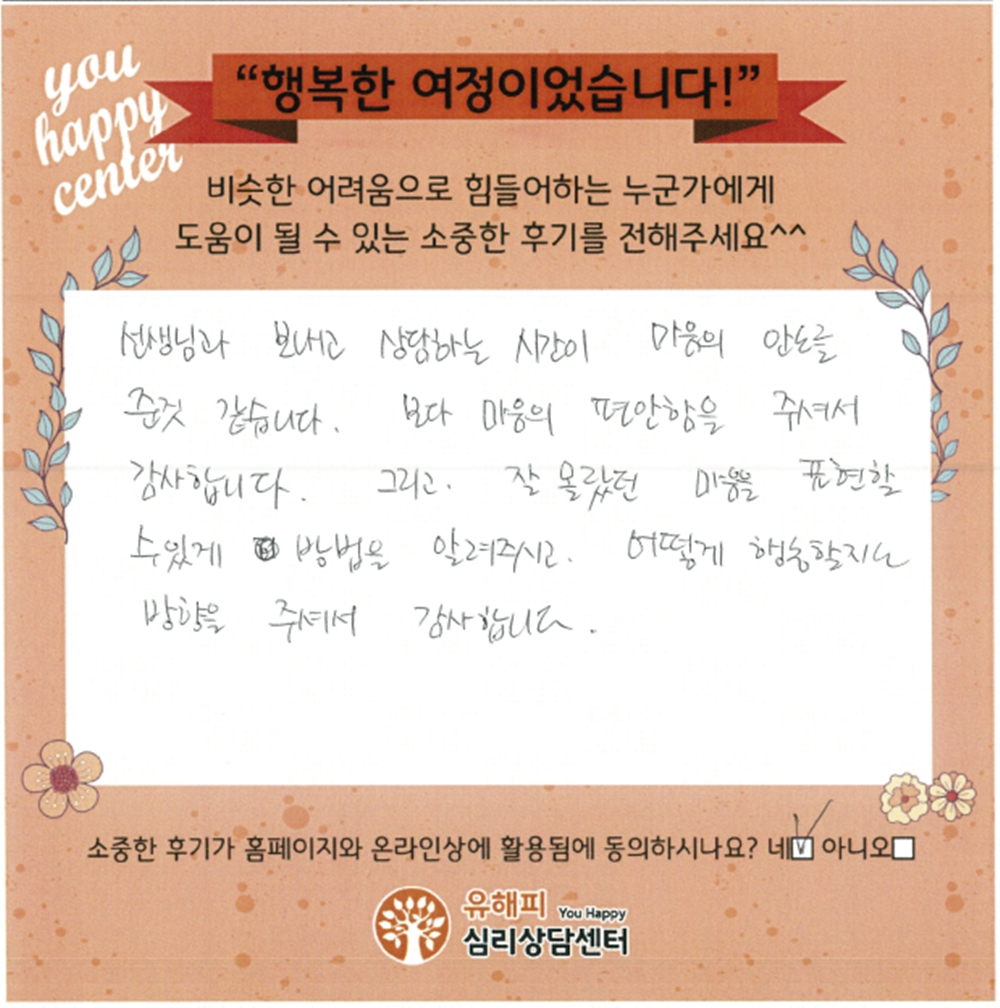 you
happy
center
“행복한 여정이었습니다!”
비슷한 어려움으로 힘들어하는 누군가에게
도움이 될 수 있는 소중한 후기를 전해주세요^^
선생님과 보내고 상담하는 시간이 마음의 안도를
준것 같습니다. 보다 마음의 편안함을 주셔서
감사합니다. 그리고. 잘 몰랐던 마음을 표현할
수있게 방법을 알려주시고. 어떻게 행동할지는
방향을 주셔서 감사합니다.
소중한 후기가 홈페이지와 온라인상에 활용됨에 동의하시나요? 네 아니오
유해피 You Happy
심리상담센터